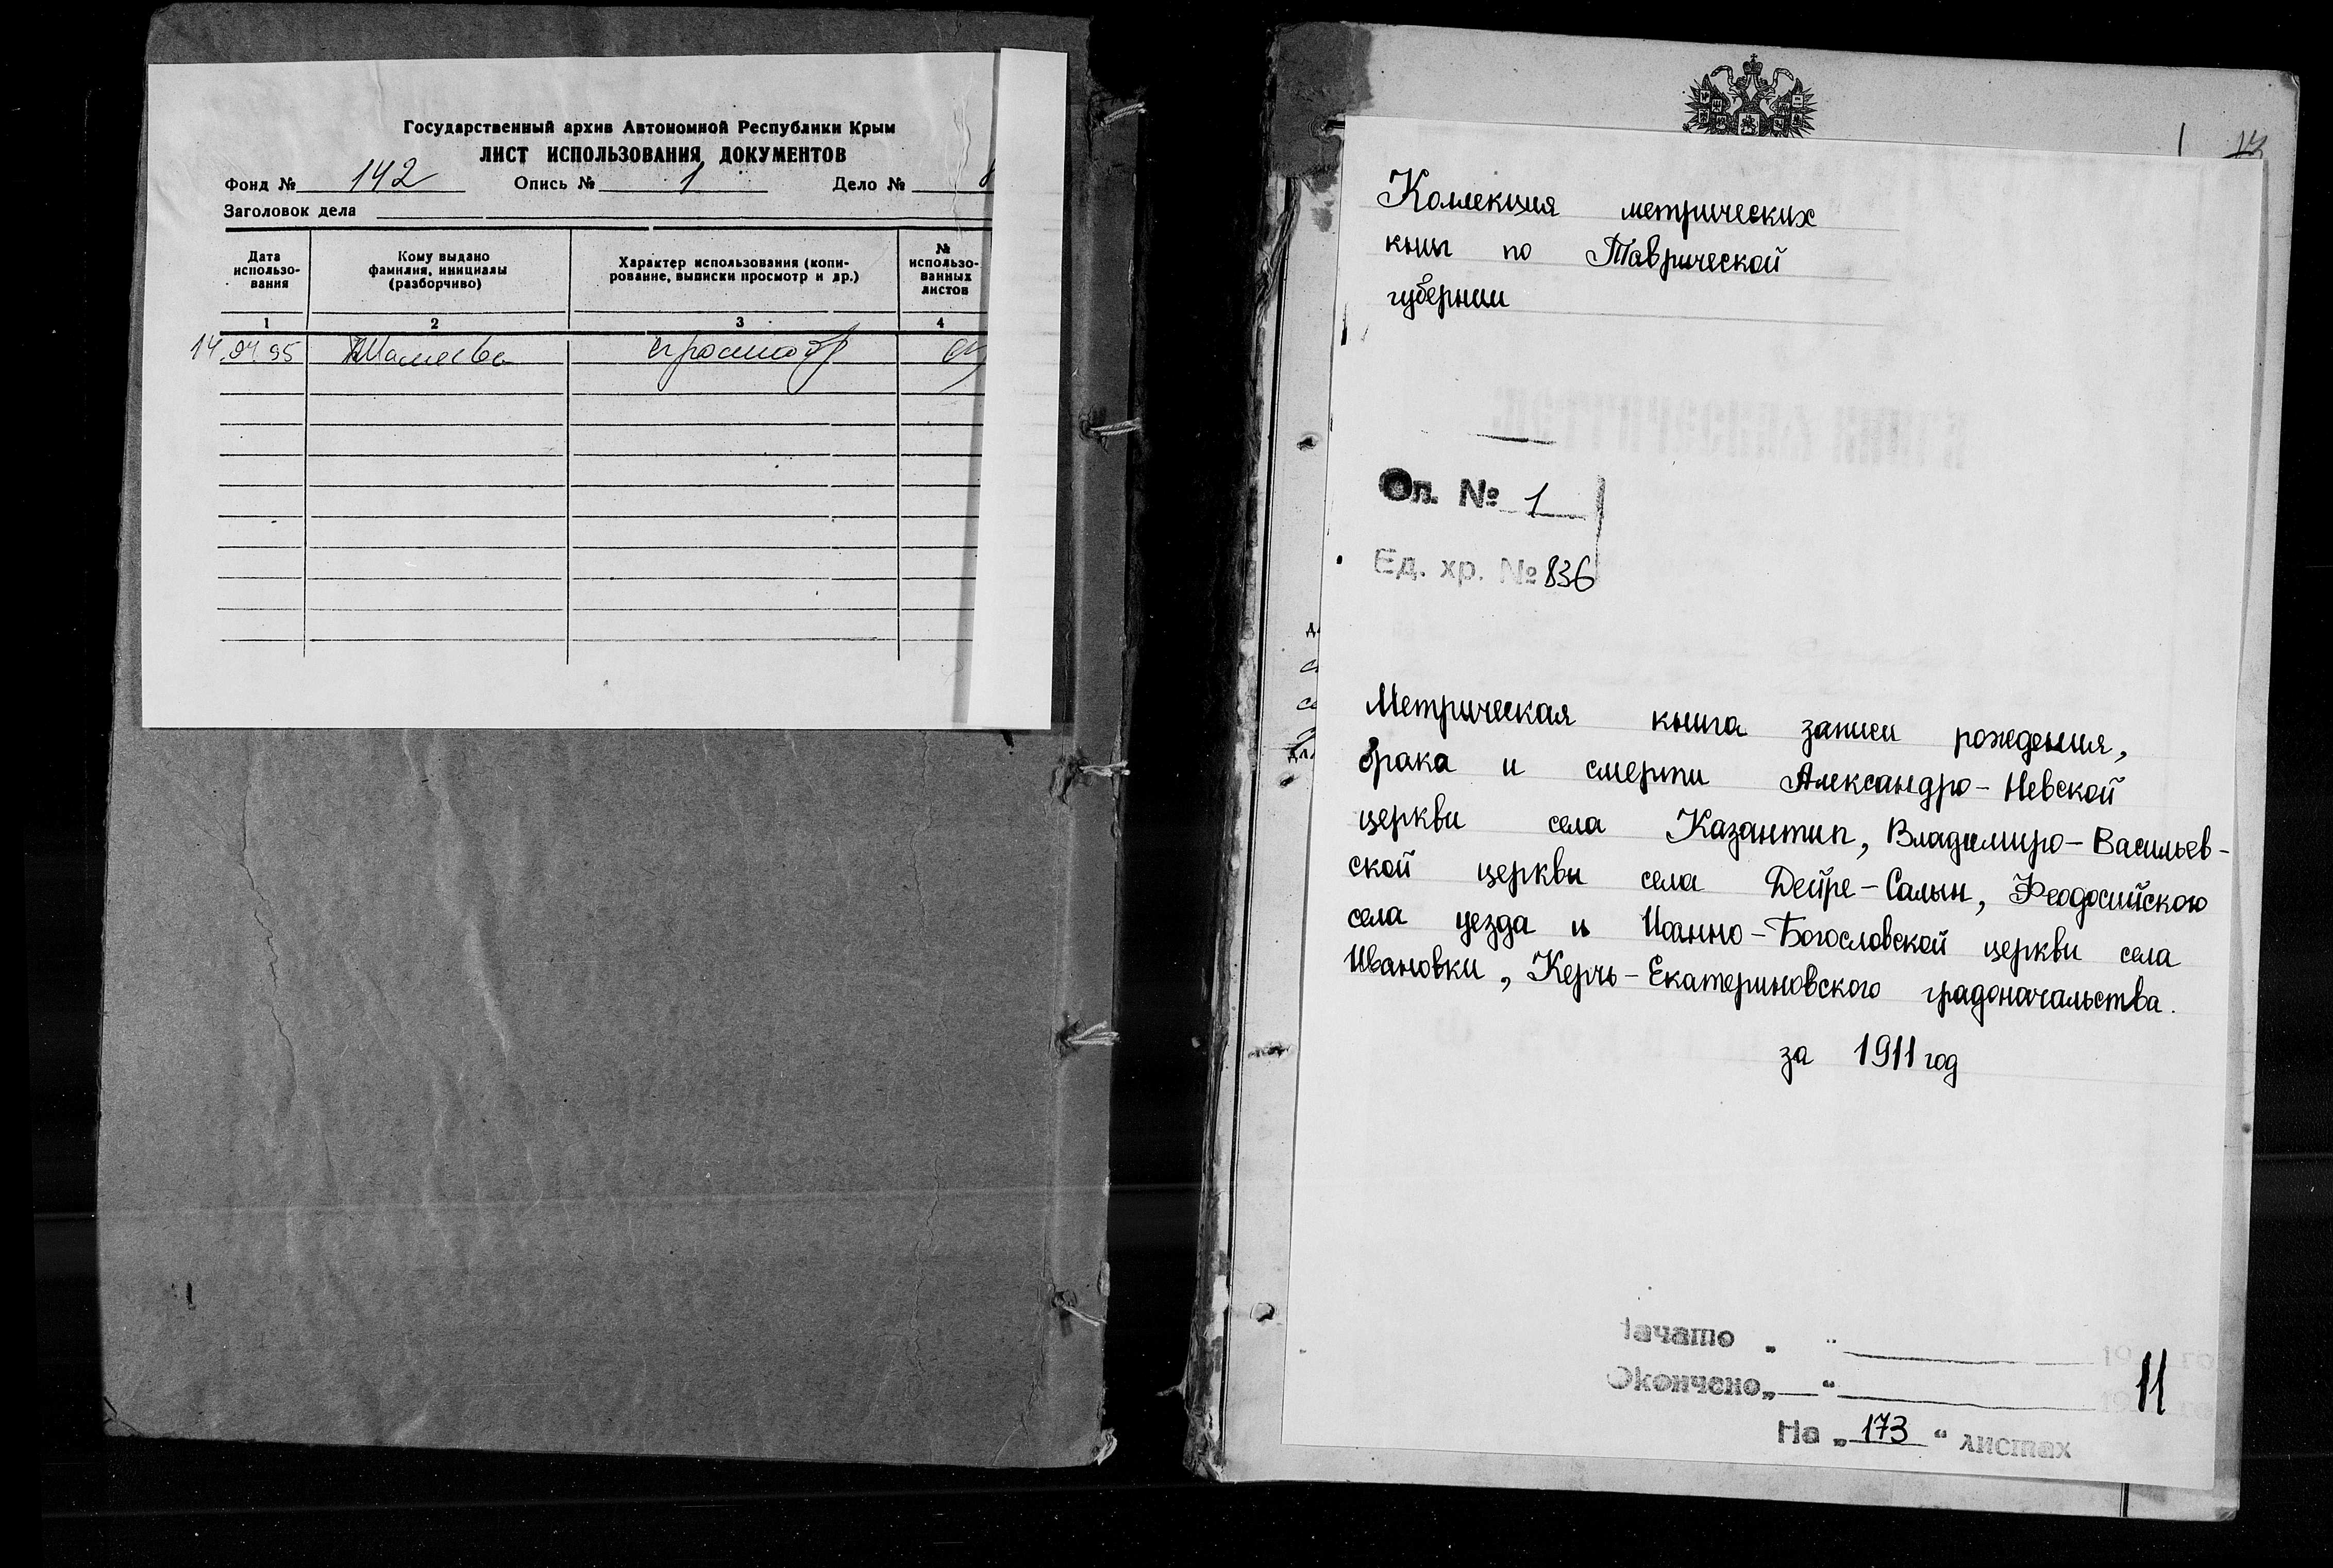 Государственный архив Автономной Республики Крым
ЛИСТ ИСПОЛЬЗОВАНИЯ ДОКУМЕНТОВ
Фонд № 142 Опись № 1 Дело №
Заголовок дела
Дата использо-вания
Кому выдано фамилия, инициалы (разборчиво)
Характер использования (копи-рование, выписки просмотр и др.)
№ использо-ванных листов
1 2 3 4
14.04.95 просмотр
Коллекция метрических
книг по Таврической
губернии
Оп. № 1
Ед. хр. № 836
Метрическая книга записи рождения,
брака и смерти Александро-Невской
церкви села Казантип, Владимиро-Васильев-
ской церкви села Дейре-Салын, Феодосийского
села уезда и Иоанно-Богословской церкви села
Ивановки, Керчь-Екатериновского градоначальства.
за 1911 год
Начато „ “ 19 го
Окончено „ “ 1911 го
На „173“ листах